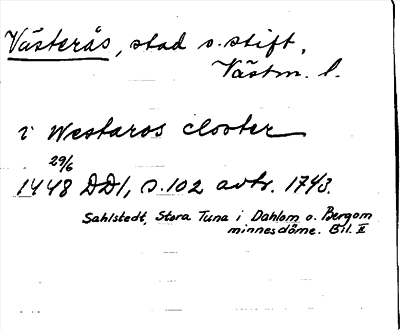 Västerås, stad o. stift,
Västm. l.
i Westaros closter
29/6
1448 DD1, s. 102 avtr. 1743.
Sahlstedt, Stora Tuna i Dahlom o. Bergom
minnesdöme. Bil. II